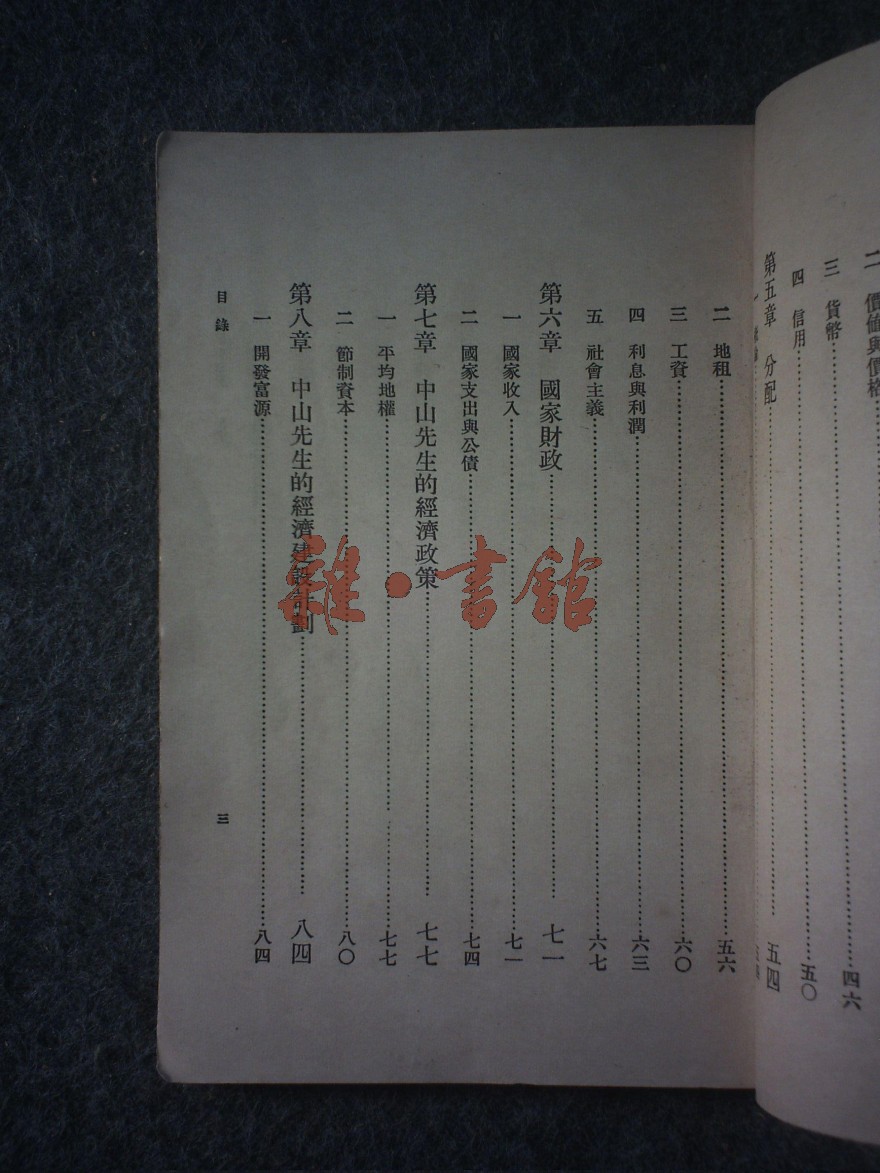 二 價値與價格
四六
三 貨幣
四 信用
五〇
第五章 分配
五四
二 地租
五六
三 工資
六〇
四 利息與利潤
六三
五 社會主義
六七
第六章 國家財政
七一
一 國家收入
七一
二 國家支出與公債
七四
第七章 中山先生的經濟政策
七七
一 平均地權
七七
二 節制資本
八〇
第八章 中山先生的經濟建設計劃
八四
一 開發富源
八四
目錄
三
雜·書館